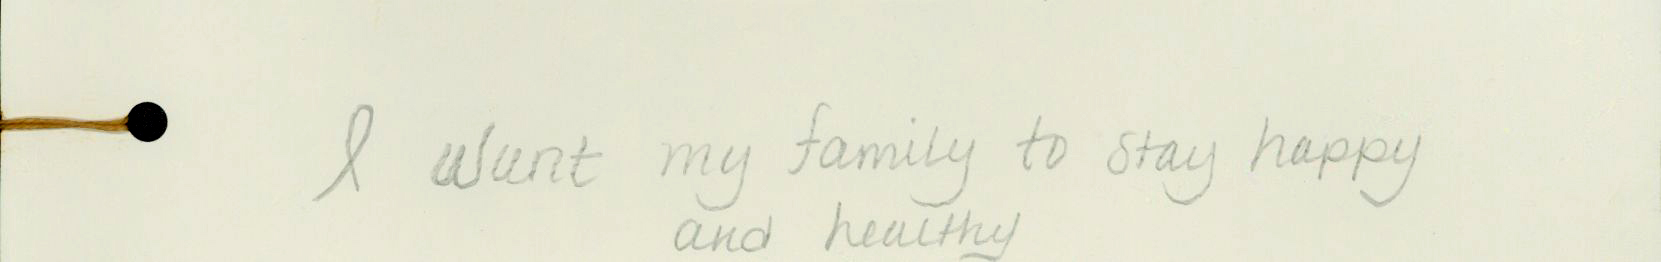 I want my family to stay happy
and healthy